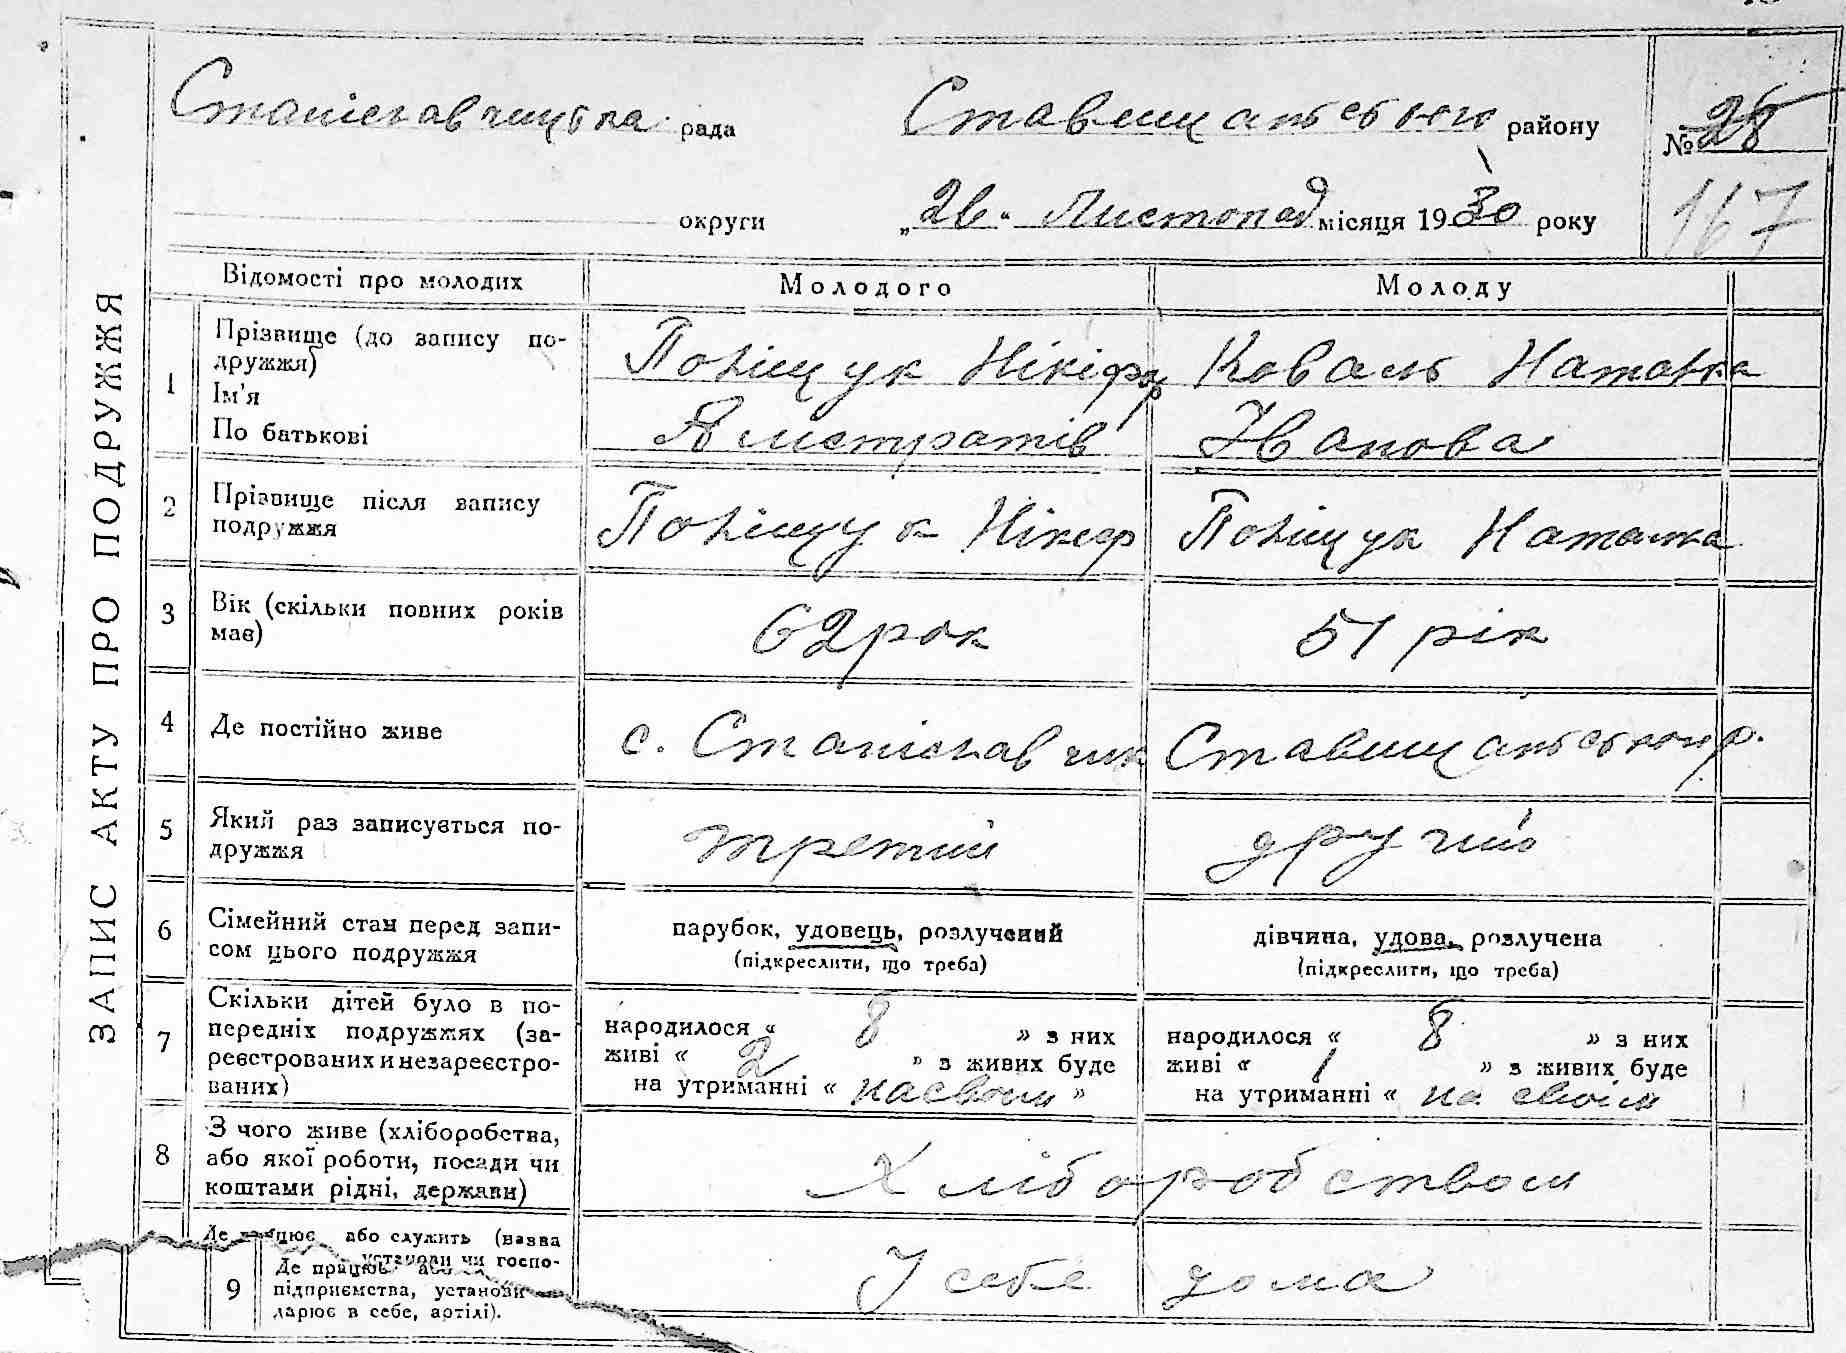 Станіславчицька рада Ставищанського району № 28
округи „26“ Листопад місяця 1930 року 167
ЗАПИС АКТУ ПРО ПОДРУЖЖЯ
Відомості про молодих Молодого Молоду
1 Прізвище (до запису по-
дружжя)
Ім'я
По батькові
Поліщук Нікіфор Коваль Наталка
Ялистратів Іванова
2 Прізвище після запису
подружжя
Поліщук Нікіф Поліщук Наталка
3 Вік (скільки повних років
має)
62 рок 51 рік
4 Де постійно живе с. Станіславчик Ставищанського р.
5 Який раз записується по-
дружжя
третий другий
6 Сімейний стан перед запи-
сом цього подружжя
парубок, удовець, розлучений дівчина, удова, розлучена
(підкреслити, що треба) (підкреслити, що треба)
7 Скільки дітей було в по-
передніх подружжях (за-
реєстрованих и незареєстро-
ваних)
народилося « 8 » з них народилося « 8 » з них
живі « 2 » з живих буде живі « 1 » з живих буде
на утриманні « на своїм » на утриманні « на своїм
8 З чого живе (хліборобства,
або якої роботи, посади чи
коштами рідні, держави)
Хліборобством
або служить (назва
установи чи госпо-
9 Де працює
підприємства, установи
дарює в себе, артілі).
У себе дома